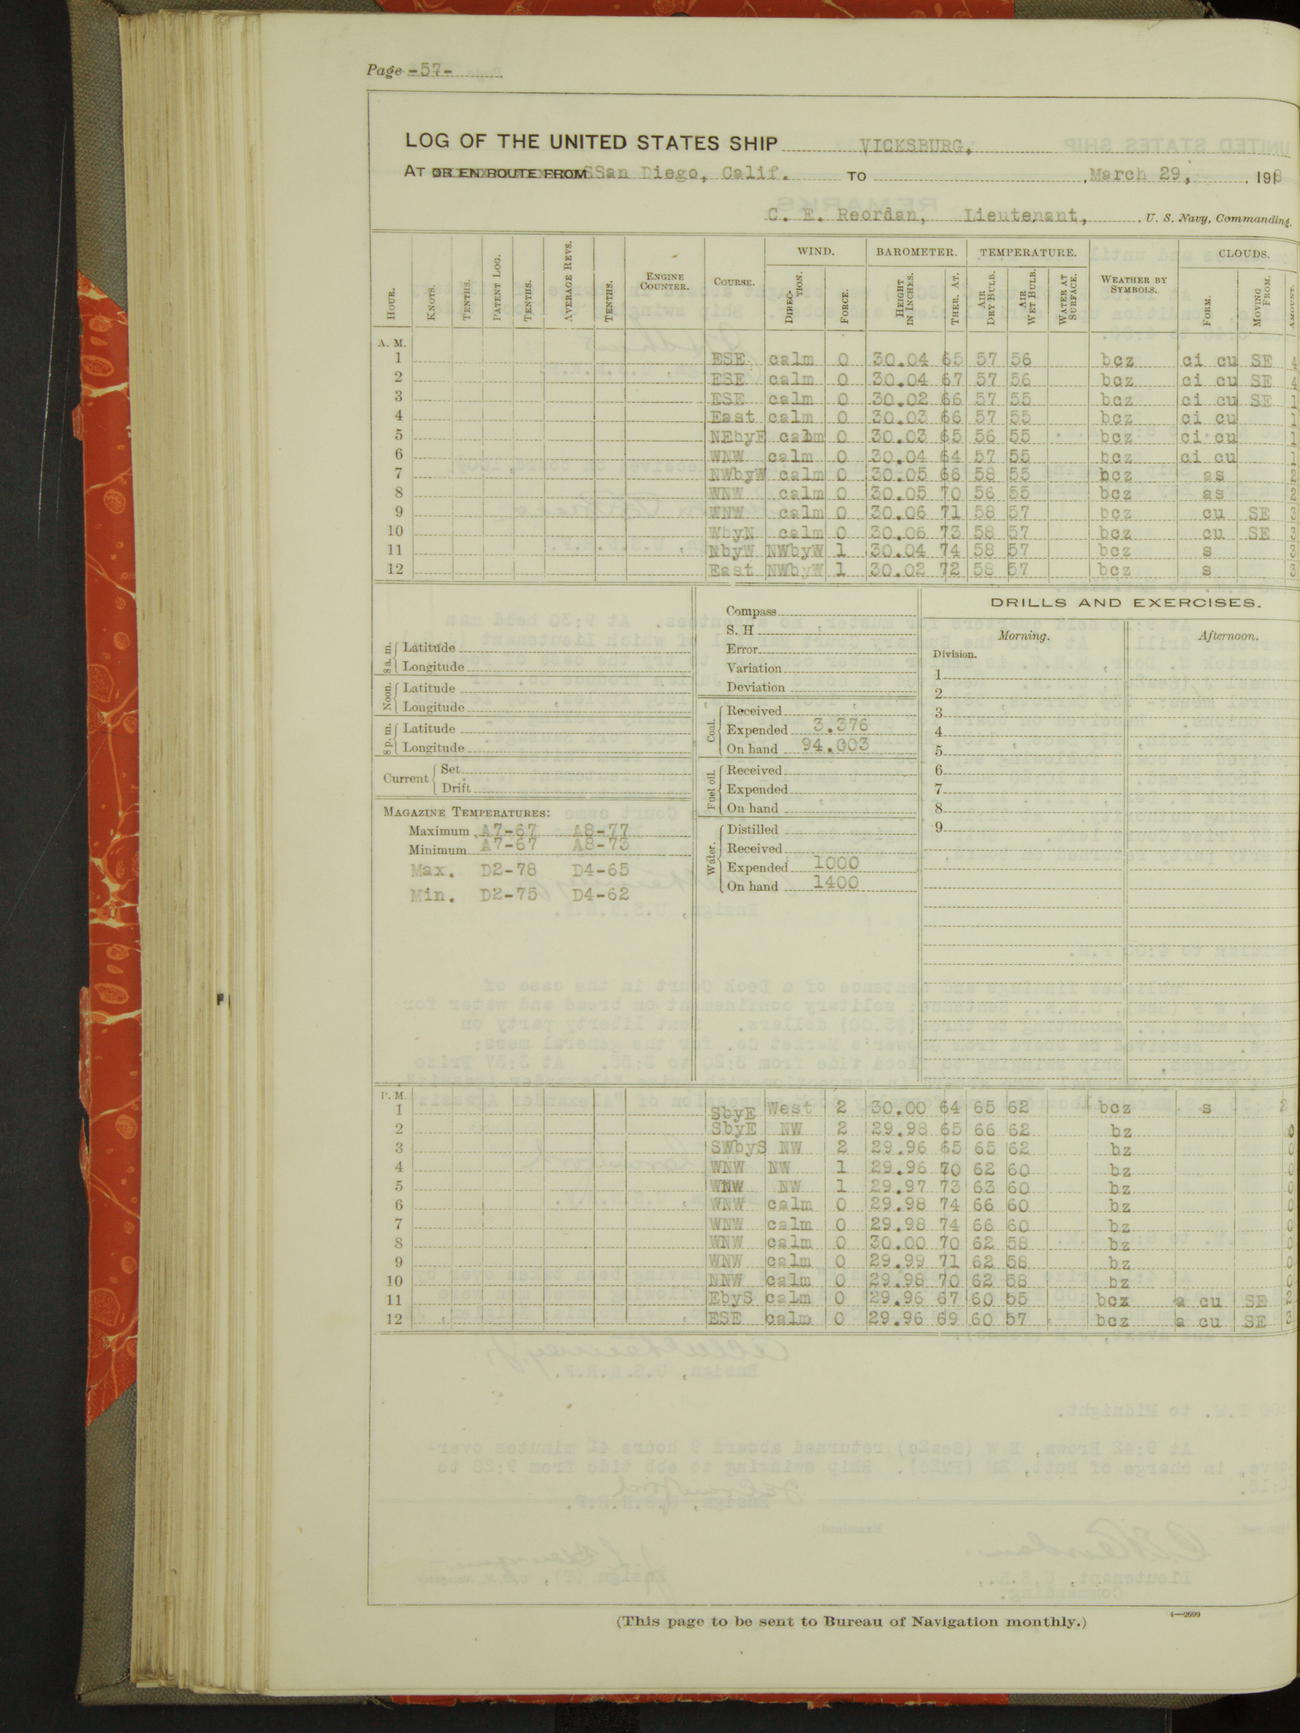 Page -57-
LOG OF THE UNITED STATES SHIP VICKSBURG,
AT OR EN ROUTE FROM SSan Diego, Calif. TO , March 29, , 1918
C. E. Reordan, Lieutenant, , U. S. Navy, Commanding.
WIND. BAROMETER. TEMPERATURE. CLOUDS.
HOUR. KNOTS. TENTHS. PATENT LOG. TENTHS. AVERAGE REVS. TENTHS. ENGINE COUNTER. COURSE. DIRECTION. FORCE. HEIGHT IN INCHES. THER. AT. AIR DRY BULB. AIR WET BULB. WATER AT SURFACE. WEATHER BY SYMBOLS. FORM. MOVING FROM. AMOUNT.
A. M.
1 ESE calm 0 30.04 65 57 56 bcz ci cu SE 4
2 ESE calm 0 30.04 67 57 56 bcz ci cu SE 4
3 ESE calm 0 30.02 66 57 55 bcz ci cu SE 1
4 East calm 0 30.03 66 57 55 bcz ci cu 1
5 NEbyE calm 0 30.03 65 56 55 bcz ci cu 1
6 WNW calm 0 30.04 64 57 55 bcz ci cu 1
7 NWbyW calm 0 30.05 66 58 55 bcz as 2
8 WNW calm 0 30.05 70 56 55 bcz as 2
9 WNW calm 0 30.06 71 58 57 bcz cu SE 3
10 WbyN calm 0 30.06 73 58 57 bcz cu SE 3
11 NbyW NWbyW 1 30.04 74 58 57 bcz s 3
12 East NWbyW 1 30.02 72 58 57 bcz s 3
8 a. m. Latitude
Longitude
Noon. Latitude
Longitude
8 p. m. Latitude
Longitude
Current Set
Drift
MAGAZINE TEMPERATURES:
Maximum A7-67 A8-77
Minimum A7-67 A8-73
Max. D2-78 D4-65
Min. D2-75 D4-62
Compass
S. H
Error
Variation
Deviation
Coal. Received
Expended 3.376
On hand 94.003
Fuel oil. Received
Expended
On hand
Water. Distilled
Received
Expended 1000
On hand 1400
DRILLS AND EXERCISES.
Morning. Afternoon.
Division.
1
2
3
4
5
6
7
8
9
P. M.
1 SbyE West 2 30.00 64 65 62 bcz s 2
2 SbyE NW 2 29.98 65 66 62 bz 0
3 SWbyS NW 2 29.96 65 65 62 bz 0
4 WNW NW 1 29.96 70 62 60 bz 0
5 WNW NW 1 29.97 73 63 60 bz 0
6 WNW calm 0 29.98 74 66 60 bz 0
7 WNW calm 0 29.98 74 66 60 bz 0
8 WNW calm 0 30.00 70 62 58 bz 0
9 WNW calm 0 29.99 71 62 58 bz 0
10 NNW calm 0 29.98 70 62 58 bz 0
11 EbyS calm 0 29.96 67 60 55 bcz a cu SE
12 ESE calm 0 29.96 69 60 57 bcz a cu SE 3
(This page to be sent to Bureau of Navigation monthly.)
4—2699